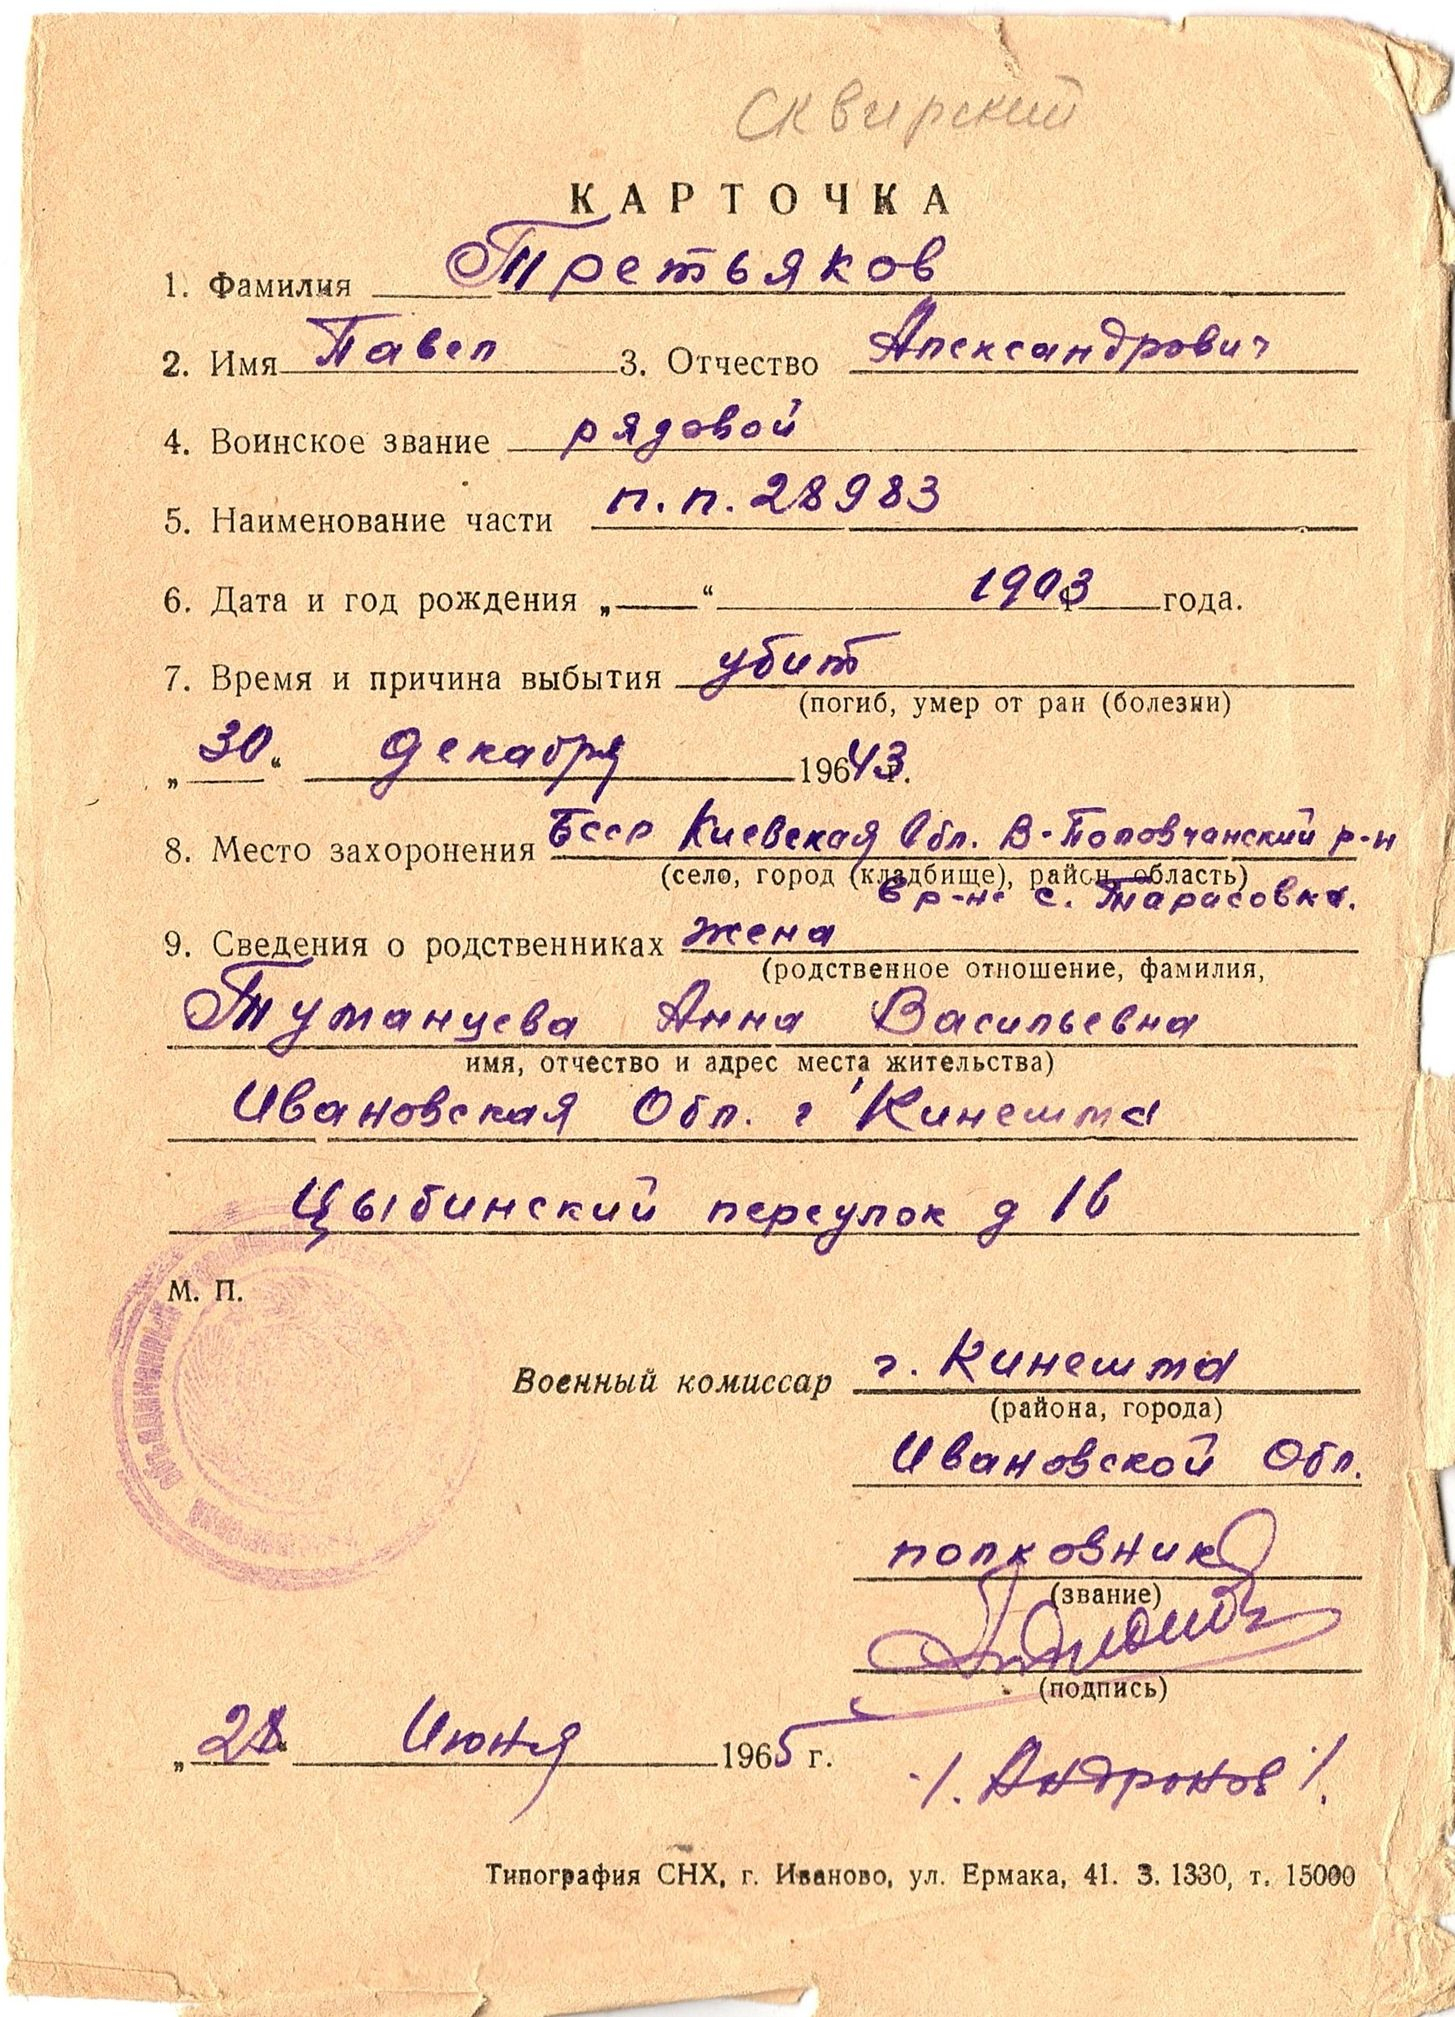 Сквирский
КАРТОЧКА
1. Фамилия Третьяков
2. Имя Павел 3. Отчество Александрович
4. Воинское звание рядовой
5. Наименование части п.п. 28983
6. Дата и год рождения „ “ 1903 года.
7. Время и причина выбытия убит
(погиб, умер от ран (болезни)
„30“ декабря 196 43 г.
8. Место захоронения Бсср Киевская Обл. В-Половчанский р-н
(село, город (кладбище), район, область)
в р-не с. Тарасовка.
9. Сведения о родственниках жена
(родственное отношение, фамилия,
Туманцева Анна Васильевна
имя, отчество и адрес места жительства)
Ивановская Обл. г Кинешма
Цыбинский переулок д 16
М. П.
Военный комиссар г. Кинешма
(района, города)
Ивановской Обл.
полковник
(звание)
(подпись)
„28“ Июня 1965 г.
/. Андронов /.
Типография СНХ, г. Иваново, ул. Ермака, 41. З. 1330, т. 15000